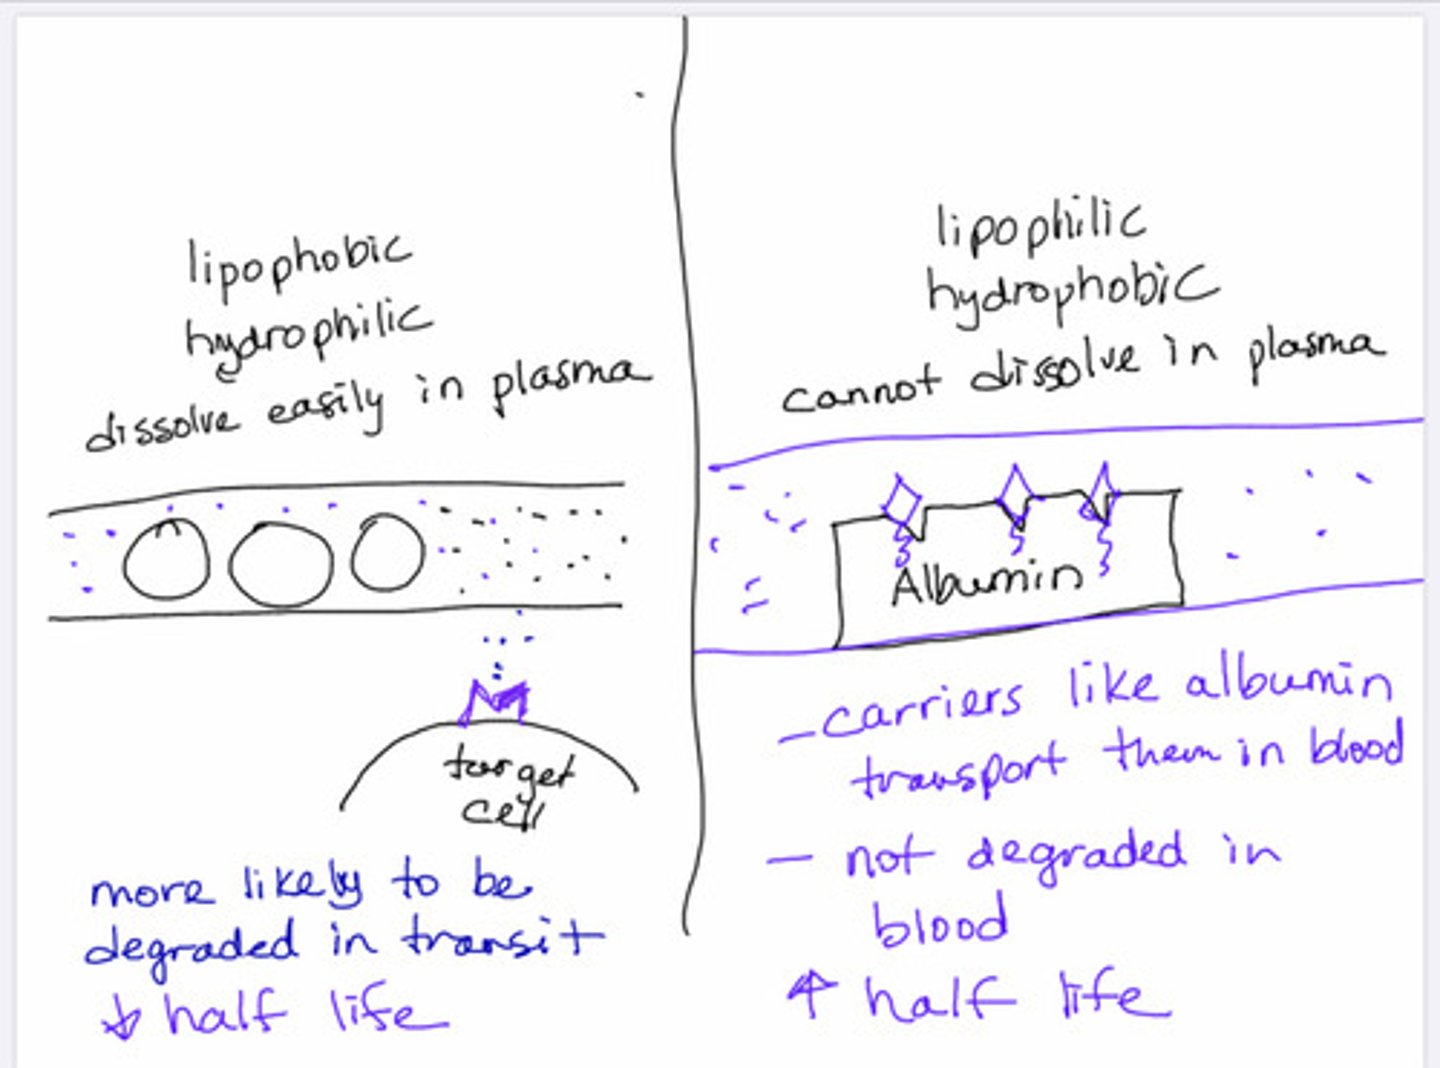 lipophobic
hydrophilic
dissolve easily in plasma
target
cell
more likely to be
degraded in transit
↓ half life
lipophilic
hydrophobic
cannot dissolve in plasma
Albumin
- carriers like albumin
transport them in blood
- not degraded in
blood
↑ half life